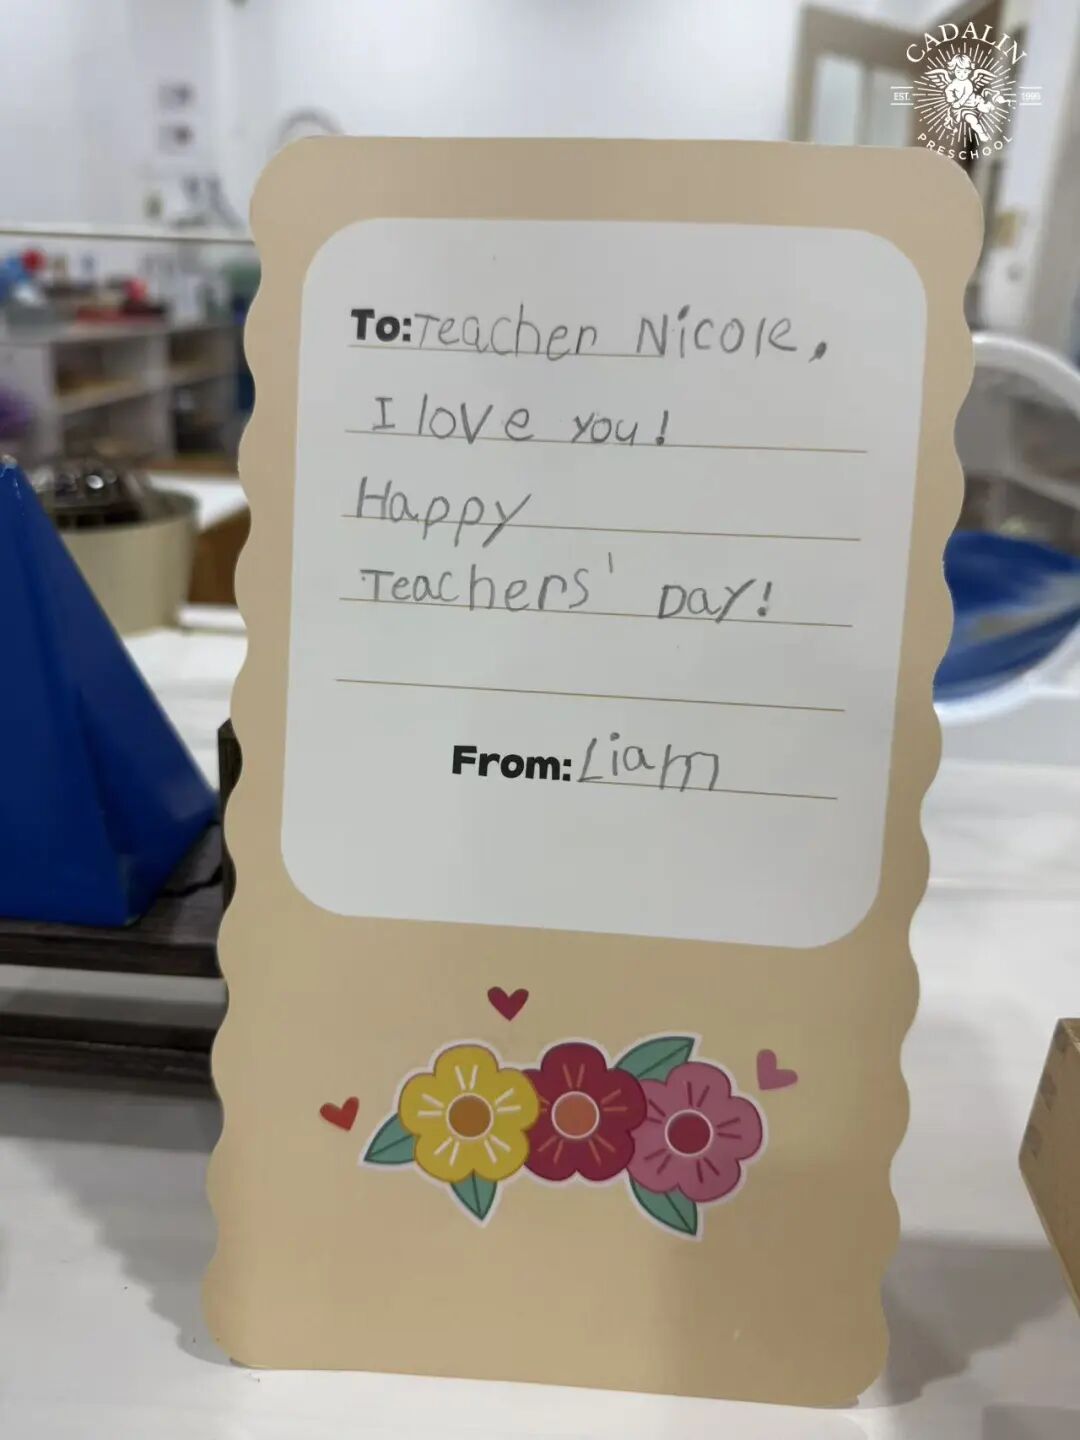 CADALIN
EST. 1999
PRESCHOOL
To: Teacher Nicole,
I love you!
Happy
Teachers' Day!
From: Liam